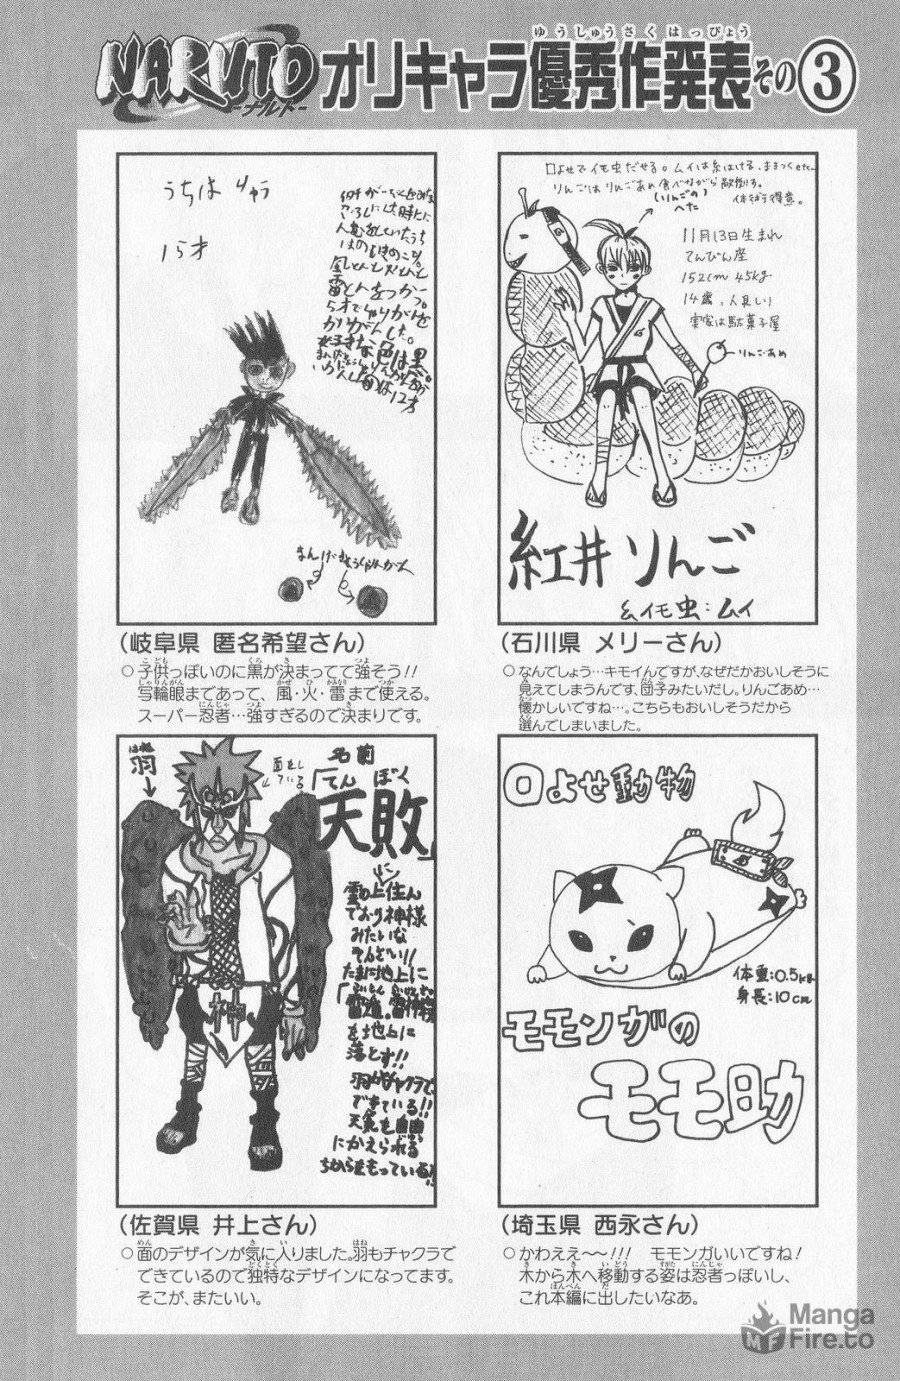 NARUTO
-ナルト-
オリキャラ優秀作発表その③
ゆうしゅうさくはっぴょう
うちは リュウ
15才
まんげきょうしゃりんがん
(岐阜県 匿名希望さん)
○子供っぽいのに黒が決まってて強そう!!
写輪眼まであって、風・火・雷まで使える。
スーパー忍者…強すぎるので決まりです。
口よせでイモ虫だせる。ムイは糸はける、まきつくetc.
りんごはりんごあめ食べながら敵倒す。
(りんごの)
へた
体術得意。
11月13日生まれ
てんびん座
152cm 45kg
14歳、人見しり
実家は駄菓子屋
りんごあめ
紅井 りんご
イモ虫:ムイ
(石川県 メリーさん)
○なんでしょう…キモイんですが、なぜだかおいしそうに
見えてしまうんです、団子みたいだし。りんごあめ…
懐かしいですね…。こちらもおいしそうだから
選んでしまいました。
はね
羽
面をし
ている
名前
「てんぱく
天敗」
雲の上に住ん
でおり神様
みたいな
そんざい!!
たまに地上に
を地上に
落とす!!
羽がチャクラで
できている!!
天気を自由
にかえられる
ちからをもっている!!
神
(佐賀県 井上さん)
○面のデザインが気に入りました。羽もチャクラで
できているので独特なデザインになってます。
そこが、またいい。
口よせ動物
体重:0.5kg
身長:10cm
モモンガの
モモ助
(埼玉県 西永さん)
○かわええ〜〜!!! モモンガいいですね!
木から木へ移動する姿は忍者っぽいし、
これ本編に出したいなあ。
MF
Manga
Fire.to